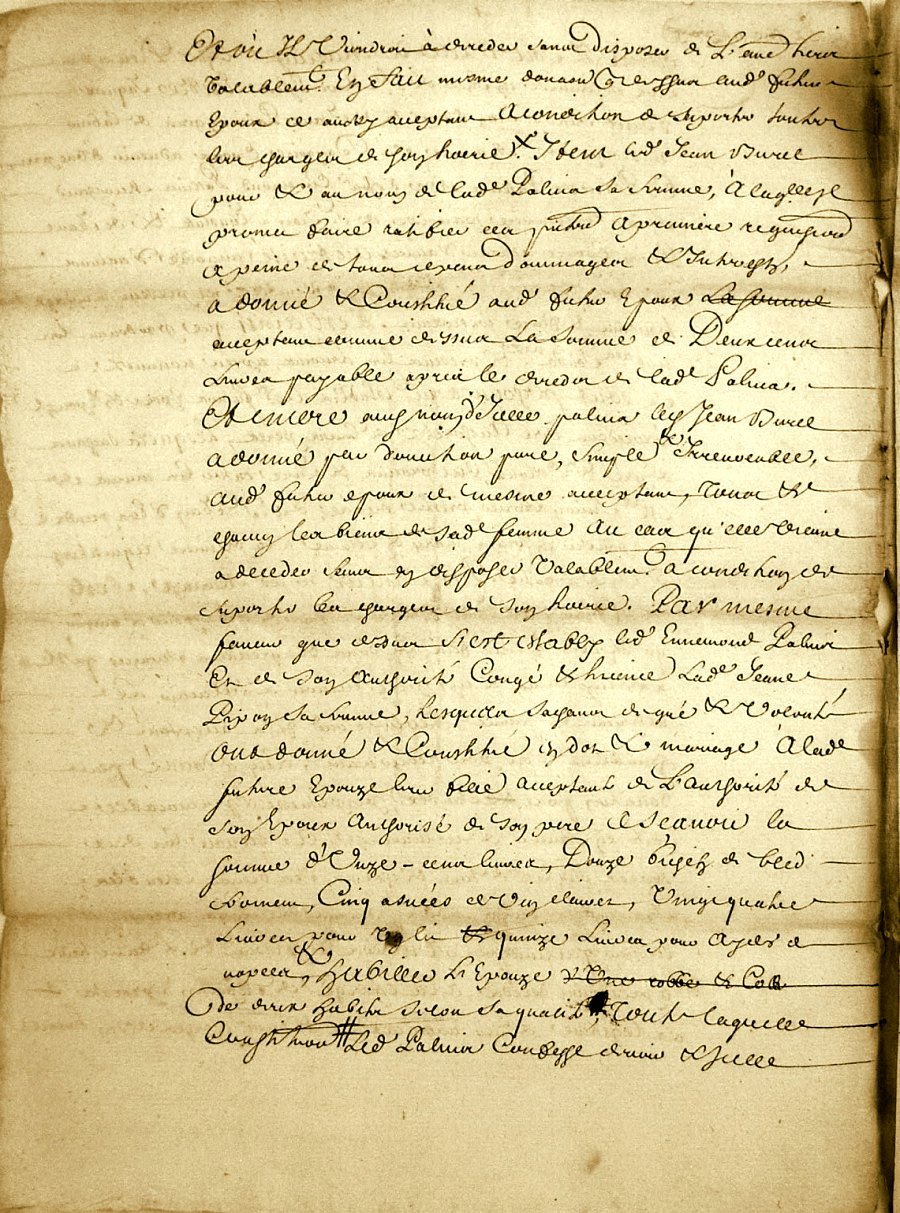 Et où Il Viendroit à deceder sans disposer de L'. hoirie
Valablemt. En fait mesme donaon Que dessus aud. futur
Epoux ce aussy acceptant A condition de suporter toutes
les charges de son hoirie. Item led. Jean Burel
pour & au nom de lad. Palmia sa femme, A laquelle Il
promet faire ratifier ces A première requisition
a peine de tous despens Dommages & Interests,
a donné & Constitué aud. futur Epoux La somme
acceptant comme dessus La Somme de Deux cens
Livres payable apres le deceder de lad. Palmia.
Et encore au nom d'Icelle palmia led. Jean Burel
a donné par donation pure, simple & Irrevocable,
aud. futur epoux de mesme acceptant, Tous &
chacuns les biens de sad. femme Au cas qu'elle Vienne
a deceder sans en disposer Valablemt. a condition de
suporter les charges de son hoirie. Par mesme
faveur que dessus s'est establi led. Ennemond Palmier
Et de son Authorité Congé & licence Lad. Jeanne
Pixon sa femme, Lesquels sachans de gré & Volonté
ont donné & Constitué en dot & mariage A lad.
future Epouze leur fille acceptant de L'authorité de
son Epoux Authorisé de son pere Et scavoir la
somme d'Unze-cens livres, Douze bichets de bled
froment, Cinq asnées de vin clairet, Vingt quatre
Livres pour & quinze Livres pour Aydes de
nopces, & Habiller L'Epouze d'Une robbe & Cott
De deux habits selon sa qualité, Toute laquelle
Constitution # Led. Palmier Confesse devoir & Icelle